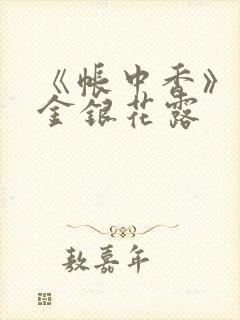 《帐中香》
金银花露
敖嘉年